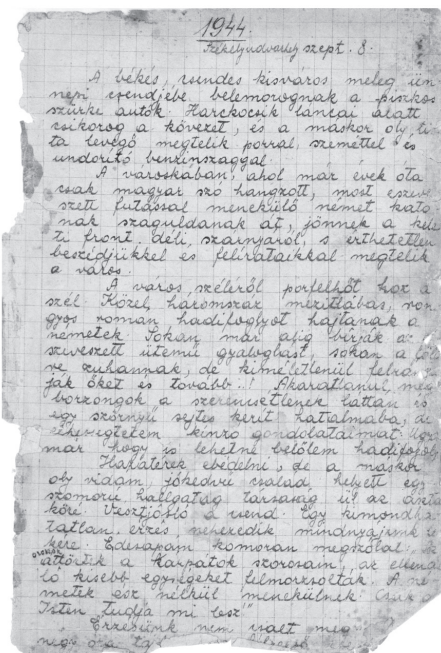 1944.
Székelyudvarhely szept. 8.
A békés, csendes kisváros meleg ün
nepi csendjébe belemorognak a piszkos
szürke autók. Harckocsik láncai alatt
csikorog a kövezet, és a máskor oly tisz
ta levegő megtelik porral, szeméttel és
undorító benzinszaggal.
A városkában, ahol már évek óta
csak magyar szó hangzott, most eszeve
szett futással menekülő német kato
nák száguldanak át, jönnek a kele
ti front déli szárnyáról, s érthetetlen
beszédjükkel és felirataikkal megtelik
a város.
A város széléről porfelhőt hoz a
szél. Közel háromszáz mezítlábas, ron
gyos román hadifoglyot hajtanak a
németek. Sokan már alig bírják az
eszeveszett ütemű gyaloglást, sokan a
ve zuhannak, de kíméletlenül
ják őket és tovább..! Akaratlanul meg
borzongok a szerencsétlenek láttán és
egy szörnyű sejtés kerít hatalmába, de
elhessegtetem kínzó gondolataimat.
már hogy is lehetne belőlem hadifogoly
Hazatérek ebédelni, de a máskor
oly vidám, jókedvű család helyett egy
szomorú hallgatag társaság ül az asztal
köré. Vésztjósló a csend. Egy kimondha
tatlan érzés nehezedik mindnyájunk
Édesapám komoran megszólal:
oroszok
áttörték a Kárpátok szorosain, az ellená
ló kisebb egységeket felmorzsolták. A né
metek ész nélkül menekülnek. Csak a
Isten tudja mi lesz!"
Érzésünk nem csalt meg